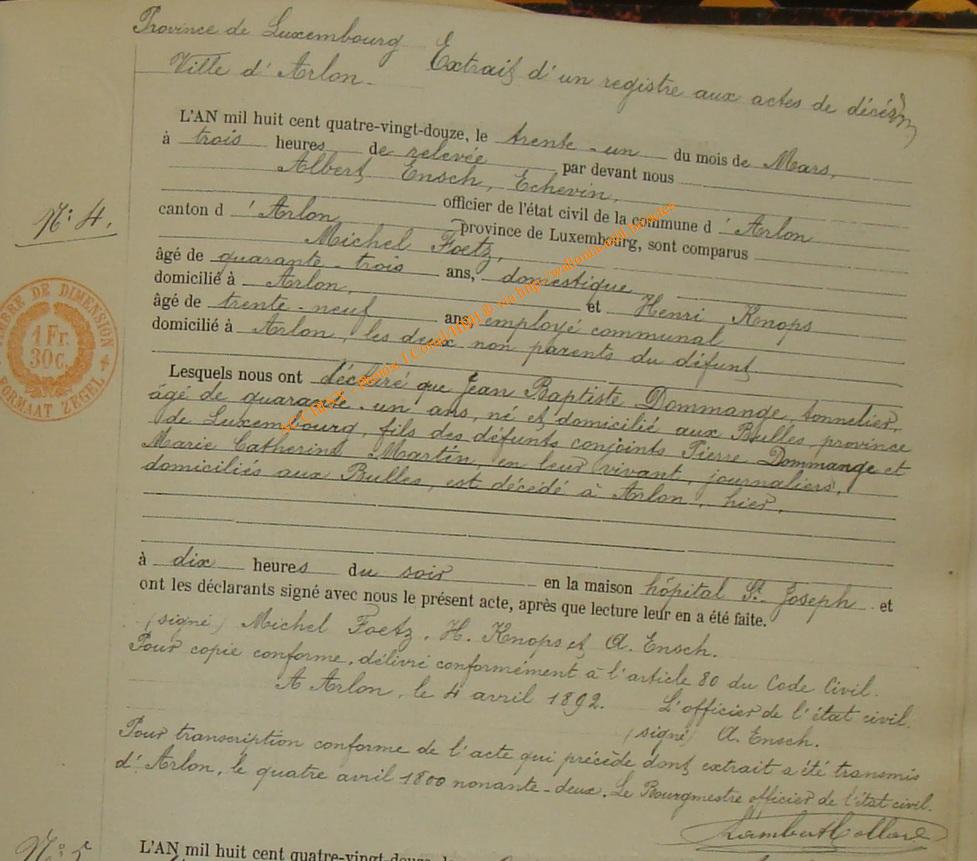 Province de Luxembourg
Ville d'Arlon.
Extrait d'un registre aux actes de décès
L'AN mil huit cent quatre-vingt-douze, le trente-un du mois de Mars,
à trois heures de relevée par devant nous
Albert Ensch, Echevin,
officier de l'état civil de la commune d'Arlon
canton d'Arlon province de Luxembourg, sont comparus
Michel Foetz,
âgé de quarante-trois ans, domestique
domicilié à Arlon, et Henri Knops
âgé de trente-neuf ans, employé communal
domicilié à Arlon, les deux non parents du défunt.
Lesquels nous ont déclaré que Jean Baptiste Dommange, tonnelier,
âgé de quarante-un ans, né et domicilié aux Bulles, province
de Luxembourg, fils des défunts conjoints Pierre Dommange et
Marie Catherine Martin, en leur vivant, journaliers,
domiciliés aux Bulles, est décédé à Arlon, hier,
à dix heures du soir en la maison hôpital St. Joseph et
ont les déclarants signé avec nous le présent acte, après que lecture leur en a été faite.
(signé) Michel Foetz, H. Knops et A. Ensch.
Pour copie conforme, délivré conformément à l'article 80 du Code Civil.
A Arlon, le 4 avril 1892. L'officier de l'état civil.
(signé) A. Ensch.
Pour transcription conforme de l'acte qui précède dont extrait a été transmis
d'Arlon, le quatre avril 1800 nonante-deux. Le Bourgmestre officier de l'état civil.
Lambert Collard
N° 4.
TIMBRE DE DIMENSION
1 Fr.
30c.
FORMAAT ZEGEL
N° 5
L'AN mil huit cent quatre-vingt-douze, le